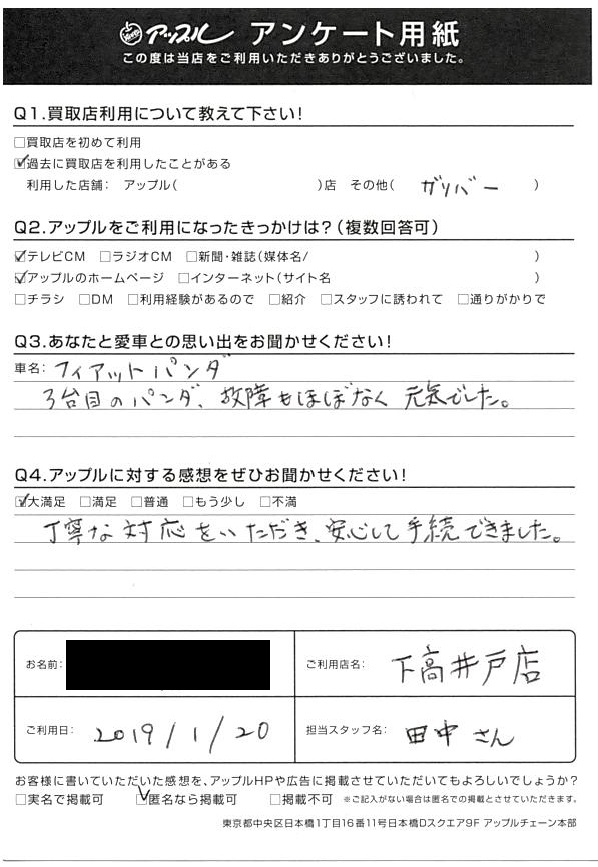 アップル アンケート用紙
この度は当店をご利用いただきありがとうございました。
Q1.買取店利用について教えて下さい!
□買取店を初めて利用
☑過去に買取店を利用したことがある
利用した店舗: アップル( )店 その他( ガリバー )
Q2.アップルをご利用になったきっかけは?(複数回答可)
☑テレビCM □ラジオCM □新聞・雑誌(媒体名/ )
☑アップルのホームページ □インターネット(サイト名 )
□チラシ □DM □利用経験があるので □紹介 □スタッフに誘われて □通りがかりで
Q3.あなたと愛車との思い出をお聞かせください!
車名: フィアットパンダ
3台目のパンダ、故障もほぼなく元気でした。
Q4.アップルに対する感想をぜひお聞かせください!
☑大満足 □満足 □普通 □もう少し □不満
丁寧な対応をいただき、安心して手続できました。
お名前:
ご利用店名: 下高井戸店
ご利用日: 2019/1/20
担当スタッフ名: 田中さん
お客様に書いていただいた感想を、アップルHPや広告に掲載させていただいてもよろしいでしょうか?
□実名で掲載可 ☑匿名なら掲載可 □掲載不可 ※ご記入がない場合は匿名での掲載とさせていただきます。
東京都中央区日本橋1丁目16番11号日本橋Dスクエア9F アップルチェーン本部